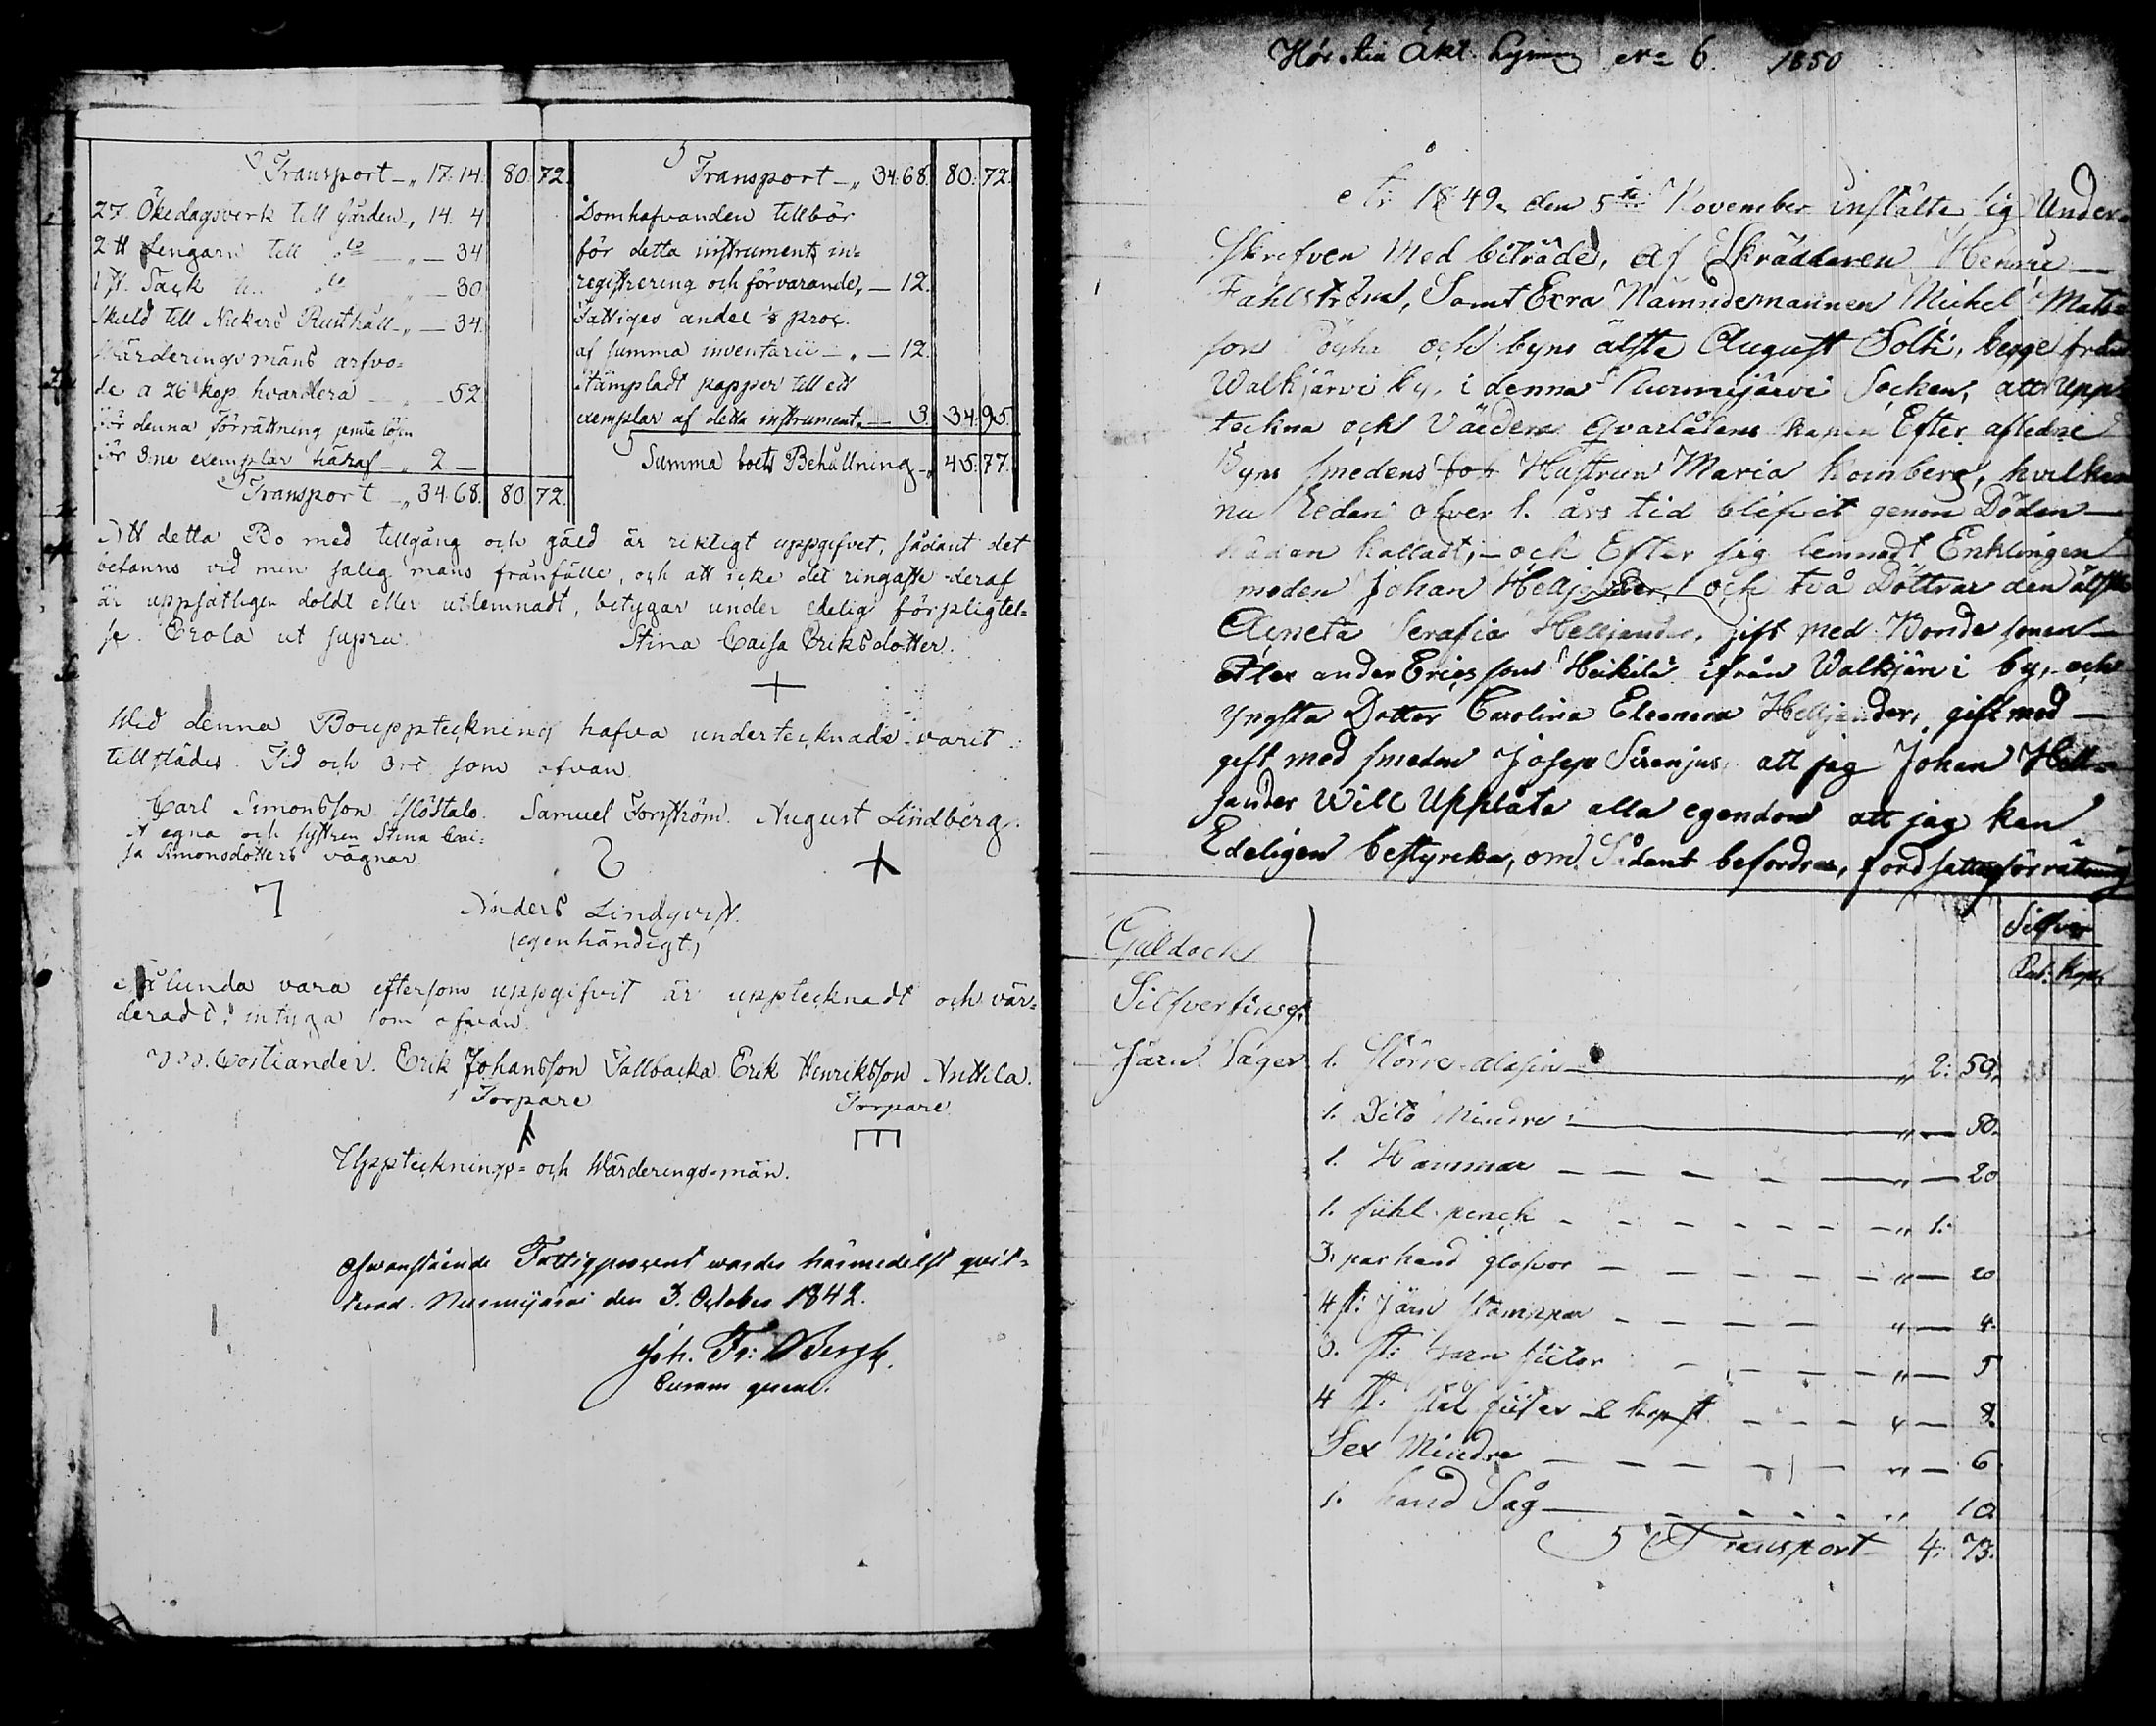 Transport - „ 17. 14. 80. 72.
27. Ökedagsverk till Gården „ 14. 4
2 ℔ Lengarn till do — „ — 34
1 st. Säck do „ — 30
Skuld till Nickars Rusthåll - „ — 34.
Wärderingsmäns arfvo-
de a 26 kop. hvardera — „ — 52
för denna förrättning jemte lösn
för 3ne exemplar häraf - „ 2 —
Transport - „ 34. 68. 80. 72.
Transport - „ 34. 68. 80. 72.
Domhafvanden tillbör
för detta instruments in-
registrering och förvarande „ — 12.
Fattiges andel 1/8 proc.
af summa inventarii — „ — 12.
Stämpladt papper till ett
exemplar af detta instrument „ — 3. 34. 95.
Summa boets Behållning - „ 45. 77.
Att detta Bo med tillgång och gäld är riktigt uppgifvet, sådant det
befanns vid min salig mans frånfälle, och att icke det ringaste deraf
är uppsåtligen doldt eller utlemnadt, betygar under edelig förpligtel-
se. Erola ut supra.
Stina Caisa Eriksdotter.
Wid denna Bouppteckning hafva undertecknade varit
tillstädes. Tid och Ort som ofvan.
Carl Simonsson Samuel Forsström. August Lindberg.
A egna och systren Stina Cai-
sa Simonsdotters vägnar.
Anders Lindqvist.
(egenhändigt)
Sålunda vara eftersom uppgifvit är upptecknadt och vär-
deradt, intyga som ofvan.
Costiander. Erik Johansson Tallbacka Erik Henriksson Anttila.
Torpare Torpare
Upptecknings- och Wärderings-män.
Ofvanstående Fattigprocent warder härmedelst qvit-
terad. Nurmijärvi den 3. October 1842.
Joh. Fr: Bergh.
Curam gerens.
Lysning No 6. 1850
År 1849, den 5te November instälte sig Under-
skrefven Med biträde, af Skräddaren Henric
Fahlström, Samt Exra Nämndemannen Michel Mats-
son och byns älste August Solki, begge från
Walkjärvi by, i denna Nurmijärvi Socken, att Upp-
teckna och Värdera Qvarlåtenskapen Efter afledne
Byns smedens Hustrun Maria Komberg, hvilken
nu Sedan öfver 1. års tid blifvit genom Döden
hädan kalladt, — och Efter sig lemnadt Enklingen
smeden Johan Helljander, och två Döttrar den älsta
Agneta Serafia Helljander, gift med Bonde sonen
Alexander Ericsson Heikilä ifrån Walkjärvi by, och
yngsta Dotter Carolina Eleonora Helljander, gift med
gift med smeden Josep Sirenjus, att jag Johan Hell-
jander Will Upplåta alla egendom att jag kan
Edeligen bestyrcka, om Sådant befordras, fordsattes förrättning
Silfver
Rub. Kop.
Guld och
Silfver finsest
Järn Sager 1. Större „ 2: 50.
1. Dito Mindre „ — 50.
1. Hammar — — — „ — 20
1. — — — „ 1.
3. par hand — — — „ — 20
4 st: Järn — — — „ — 4.
st: — — „ — 5
4 st. Stål 2 kop st. — — — „ — 8.
Sex Mindre — — — „ — 6
1. hand Såg — — — „ 10
Transport 4: 73.